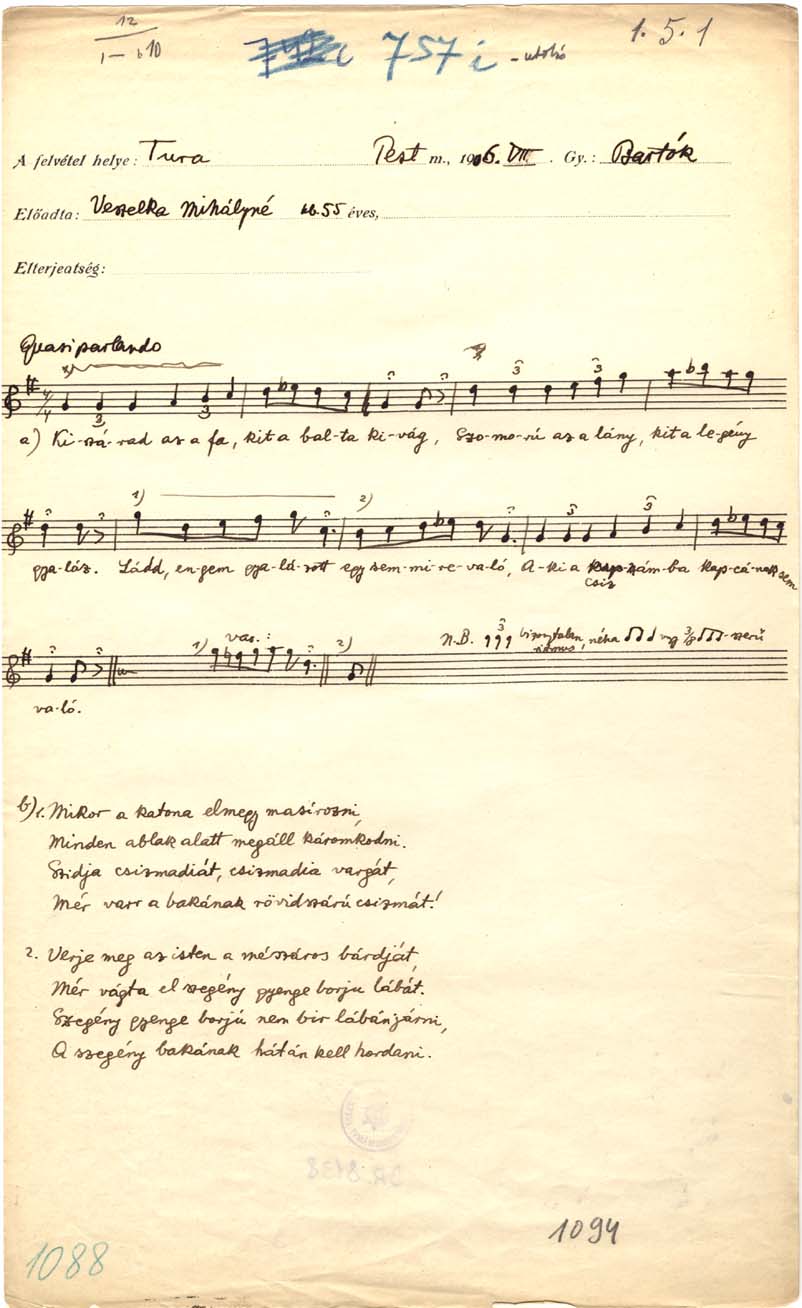 12
I–610
757 i -utolsó
1. 5. 1
A felvétel helye: Tura Pest m., 1906. VII. Gy.: Bartók
Előadta: Veszelka Mihályné 55 éves,
Elterjeatség:
Quasi parlando
a) Ki-szá-rad az a fa, kit a bal-ta ki-vág, Szo-mo-rú az a lány, kit a le-gény
gya-láz. Ládd, en-gem gya-lá-zott egy sem-mi-re-va-ló, A-ki a kap-zám-ba kap-cá-nak sem
csiz
1) var.: 2) N.B. bizonytalan ritmus, néha vagy -szerű
va-ló.
b) 1. Mikor a katona elmegy masírozni,
Minden ablak alatt megáll káromkodni.
Szidja csizmadiát, csizmadia vargát,
Mér varr a bakának rövidszárú csizmát!
2. Verje meg az isten a mészáros bárdját,
Mér vágta el szegény gyenge borju lábát.
Szegény gyenge borjú nem bir lábánjárni,
A szegény bakának hátán kell hordani.
1094
1088